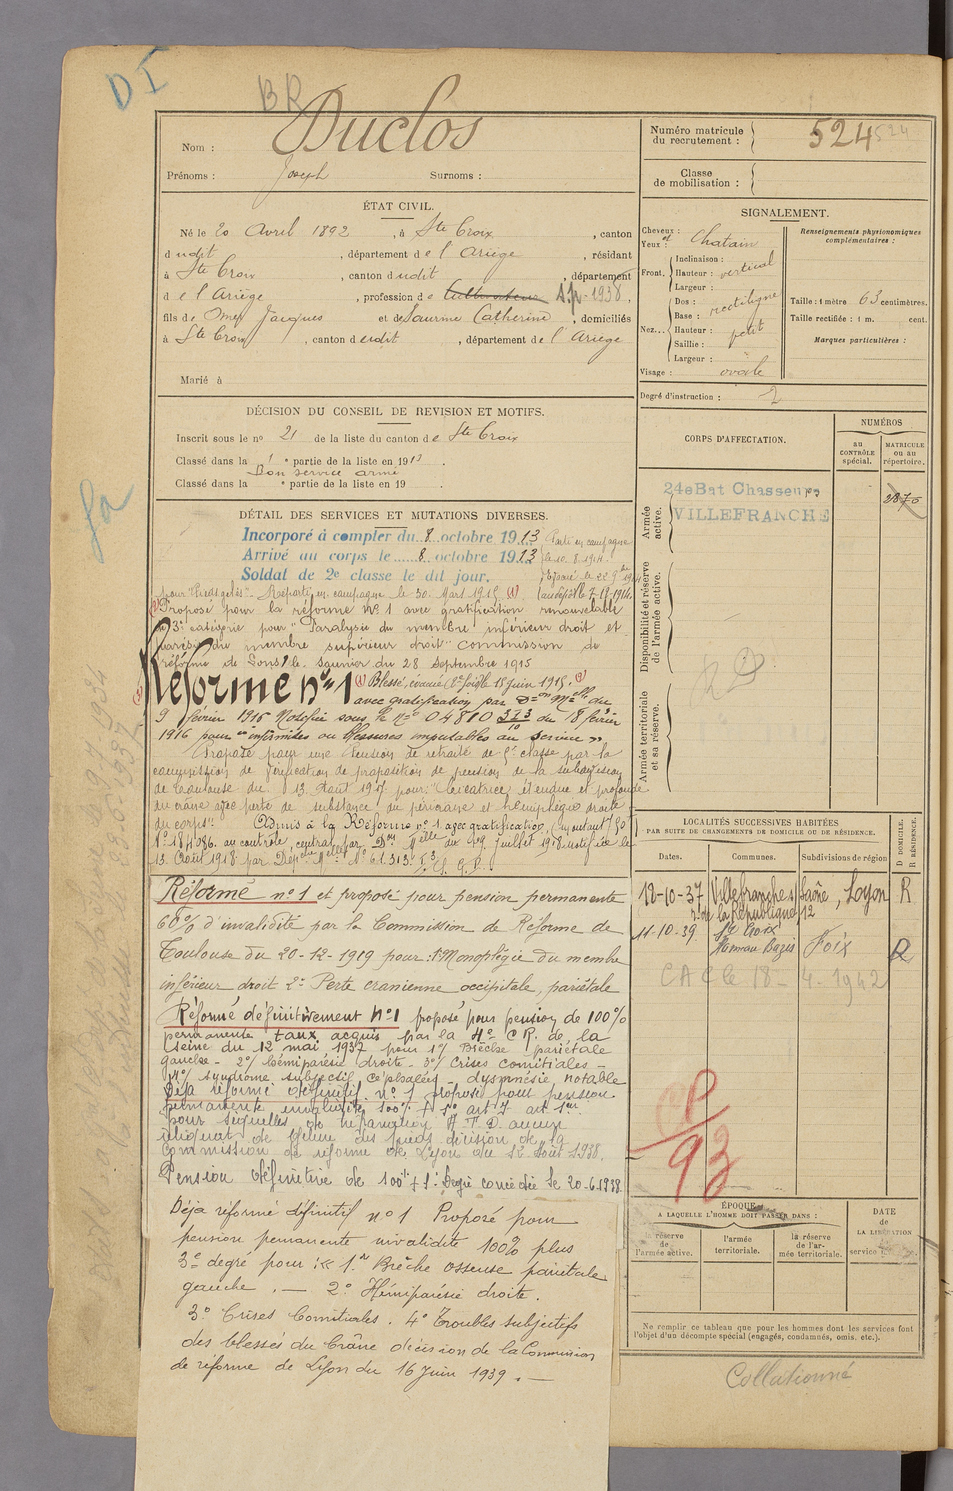 D I
BR
Nom : Duclos
Prénoms : Joseph Surnoms :
Numéro matricule du recrutement : 524 524
Classe de mobilisation :
ÉTAT CIVIL.
Né le 20 Avril 1892, à Ste Croix, canton
dudit, département de l'Ariège, résidant
à Ste Croix, canton dudit, département
de l'Ariège, profession de Cultivateur S.p. 1938,
fils de Jacques et de Catherine, domiciliés
à Ste Croix, canton dudit, département de l'Ariège
Marié à
SIGNALEMENT.
Cheveux :
Yeux : et Chatain
Front. Inclinaison :
Hauteur : vertical
Largeur :
Nez... Dos : rectiligne
Base :
Hauteur : petit
Saillie :
Largeur :
Visage : ovale
Renseignements physionomiques complémentaires :
Taille : 1 mètre 63 centimètres.
Taille rectifiée : 1 m. cent.
Marques particulières :
Degré d'instruction : 2
DÉCISION DU CONSEIL DE REVISION ET MOTIFS.
Inscrit sous le no 21 de la liste du canton de Ste Croix
Classé dans la 1e partie de la liste en 1913.
Bon service armé
Classé dans la e partie de la liste en 19 .
CORPS D'AFFECTATION.
NUMÉROS
au CONTRÔLE spécial.
MATRICULE ou au répertoire.
Armée active.
24e Bat Chasseurs
VILLEFRANCHE
Disponibilité et réserve de l'armée active.
Armée territoriale et sa réserve.
RD
DÉTAIL DES SERVICES ET MUTATIONS DIVERSES.
Incorporé à compter du 8 octobre 1913
Arrivé au corps le 8 octobre 1913
Soldat de 2e classe le dit jour.
Parti en campagne
le 10.8.1914.
Evacué le 22 9bre 1914
pour "Pieds gelés". Reparti en campagne le 30 Mars 1915 (1)
Proposé pour la réforme no 1 avec gratification renouvelable
3e catégorie pour "Paralysie du membre inférieur droit et
parésie du membre supérieur droit" commission de
réforme de Lons le Saunier du 28 Septembre 1915
Réformé no 1 (1) Blessé, évacué le 15 Juin 1915. (1)
avec gratification par Don Mlle du
9 février 1916 Notifiée sous le No 04810 du 18 février
1916 pour "infirmités ou blessures imputables au service"
Proposé pour une Pension de retraite de 5e classe par la
commission de vérification de proposition de pension de la subdivision
de Toulouse du 13 Août 1917 pour: Cicatrice étendue et profonde
du crâne avec perte de substance du péricrane et hémiplégie droite
du corps". Admis à la Réforme no 1 avec gratification,
au contrôle central par Don Mlle du 29 Juillet 1918 notifiée le
13 Août 1918 par Dépche Mlle No 61.313
Réformé no 1 et proposé pour pension permanente
60% d'invalidité par la Commission de Réforme de
Toulouse du 20-12-1919 pour : 1o Monoplégie du membre
inférieur droit 2o Perte cranienne occipitale, pariétale
Réformé définitivement No 1 proposé pour pension de 100%
permanente taux acquis par la 4e C.R. de la
Seine du 12 mai 1937 pour 1o/ Brèche pariétale
gauche - 2o/ hémiparésie droite - 3o/ Crises comitiales -
4o/ syndrome subjectif céphalées - dysmnésie notable
Déjà réformé définitif no 1 proposé pour pension
permanente invalidité 100%
pour séquelles de
gelure des pieds décision de la
commission de réforme de Lyon du 12 Août 1938.
Pension définitive de 100% + 1. Degré concédée le 20-6-1938
Déjà réformé définitif no 1 Proposé pour
pension permanente invalidité 100% plus
3e degré pour : "1o Brèche osseuse pariétale
gauche. — 2o Hémiparésie droite.
3o Crises Comitiales. 4o Troubles subjectifs
des blessés du Crâne décision de la Commission
de réforme de Lyon du 16 Juin 1939. —
LOCALITÉS SUCCESSIVES HABITÉES
PAR SUITE DE CHANGEMENTS DE DOMICILE OU DE RÉSIDENCE.
Dates. Communes. Subdivisions de région
D DOMICILE. R RÉSIDENCE.
12-10-37 Villefranche s/ Saône, Lyon R
r. de la République 12
11-10-39 Ste Croix
Hameau Bazis Foix D
CAC le 18-4-1942
P
93
ÉPOQUE
A LAQUELLE L'HOMME DOIT PASSER DANS :
la réserve de l'armée active.
l'armée territoriale.
la réserve de l'armée territoriale.
DATE de LA LIBÉRATION
Ne remplir ce tableau que pour les hommes dont les services font
l'objet d'un décompte spécial (engagés, condamnés, omis, etc.).
Collationné